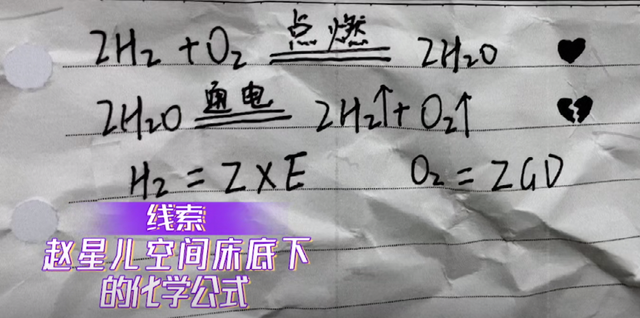 2H₂ + O₂ 点燃 2H₂O
2H₂O 通电 2H₂↑ + O₂↑
H₂ = ZXE O₂ = ZGD
线索
赵星儿空间床底下
的化学公式